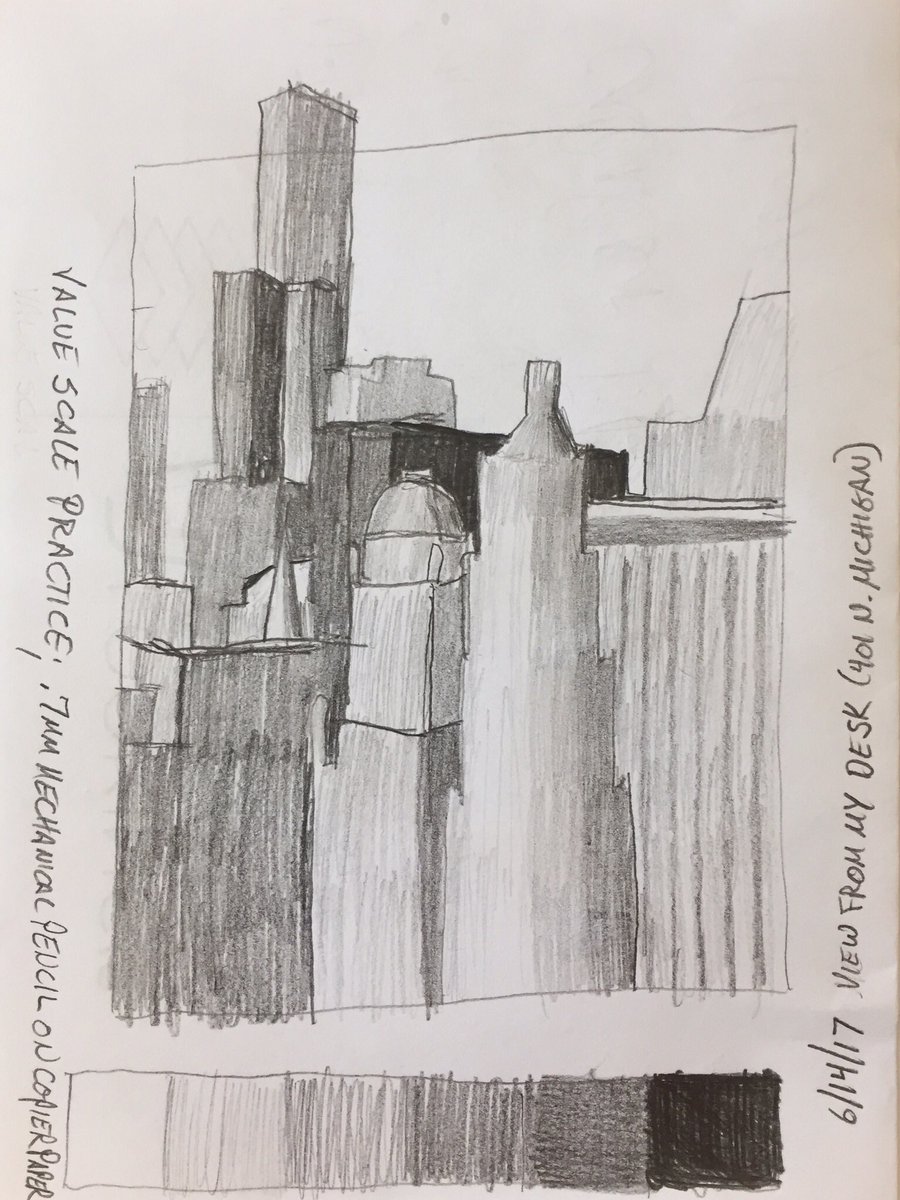 VALUE SCALE PRACTICE; .7MM MECHANICAL PENCIL ON COPIER PAPER
6/14/17 VIEW FROM MY DESK (401 N. MICHIGAN)